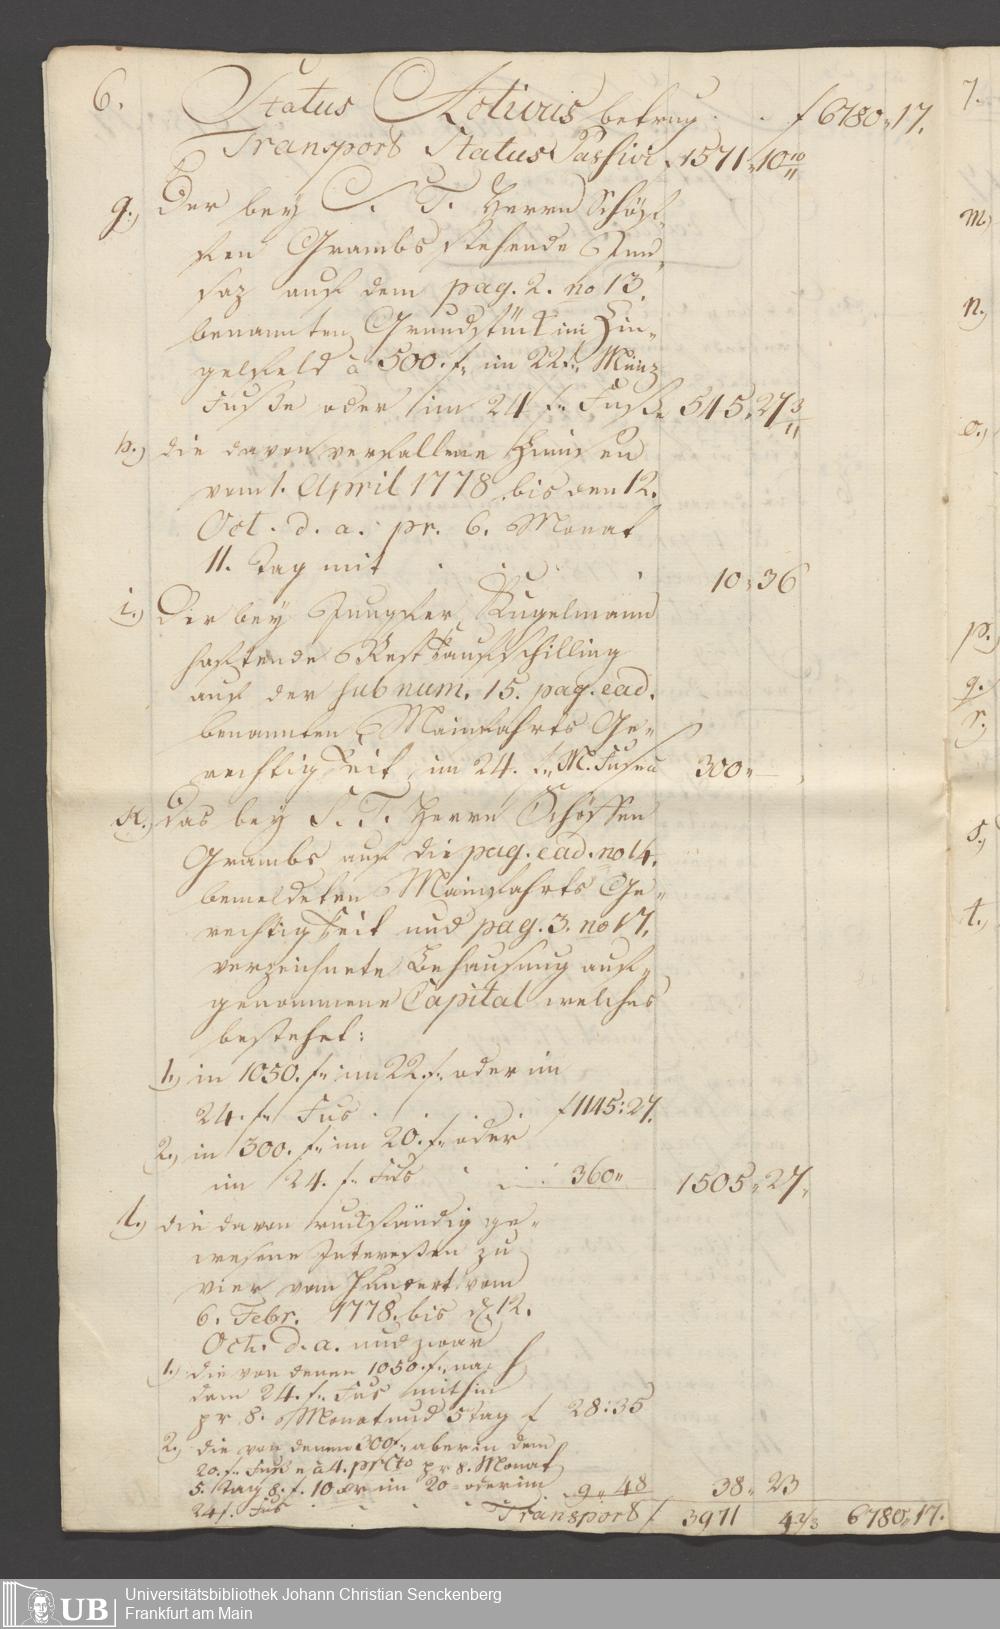 6. Status Activus betrug . . f 6780 " 17.
Transport Status Passivi . 1571 " 10 10/11
g.) Der bey S. T. Herrn Schöf-
fen Grambs stehende Ein-
saz auf dem pag. 2. no 13.
benannten Grundstück im Hin-
gelfeld à 500. f. im 22. f. Münz
Fusse oder im 24 f. Fusse 545 " 27 3/11
h.) die davon verfallene Zinnsen
vom 1. April 1778. bis den 12.
Oct. d. a. pr. 6. Monat
11. Tag mit . . . 10 " 36
i.) Der bey Jungfer Kugelmann
haftende RestKaufschilling
auf der sub num. 15. pag. ead.
benannten Mainfahrts Ge-
rechtigkeit im 24. f. M. Fuse 300 " —
k.) Das bey S. T. Herrn Schöffen
Grambs auf die pag. ead. no 14.
bemeldeten Mainfahrts Ge-
rechtigkeit und pag. 3. no 17.
verzeichnete Behausung auf-
genommene Capital welches
bestehet:
1.) in 1050. f. im 22. f. oder im
24. f. Fus . . . . f 1145 : 27.
2.) in 300. f. im 20. f. oder
im 24. f. Fus . . . 360 " 1505 " 27 "
l.) die davon ruckständig ge-
wesene Interessen zu
vier vom Hundert vom
6. Febr. 1778. bis d. 12.
Oct. d. a. und zwar
1.) die von denen 1050. f. nach
dem 24. f. Fus mithin
pr 8. Monat und 5 Tag f 28 : 35
2.) die von denen 300 f. aber in dem
20. f. Fuse à 4. prCto pr 8. Monat
5. Tag 8. f. 10 xr im 20 oder im 9 " 48 38 " 23
24 f. Fus . . . Transport f 3971 4 2/3 6780 " 17.
7.
m.)
n.)
o.)
p.)
q.)
r.)
s.)
t.)
UB
Universitätsbibliothek Johann Christian Senckenberg
Frankfurt am Main